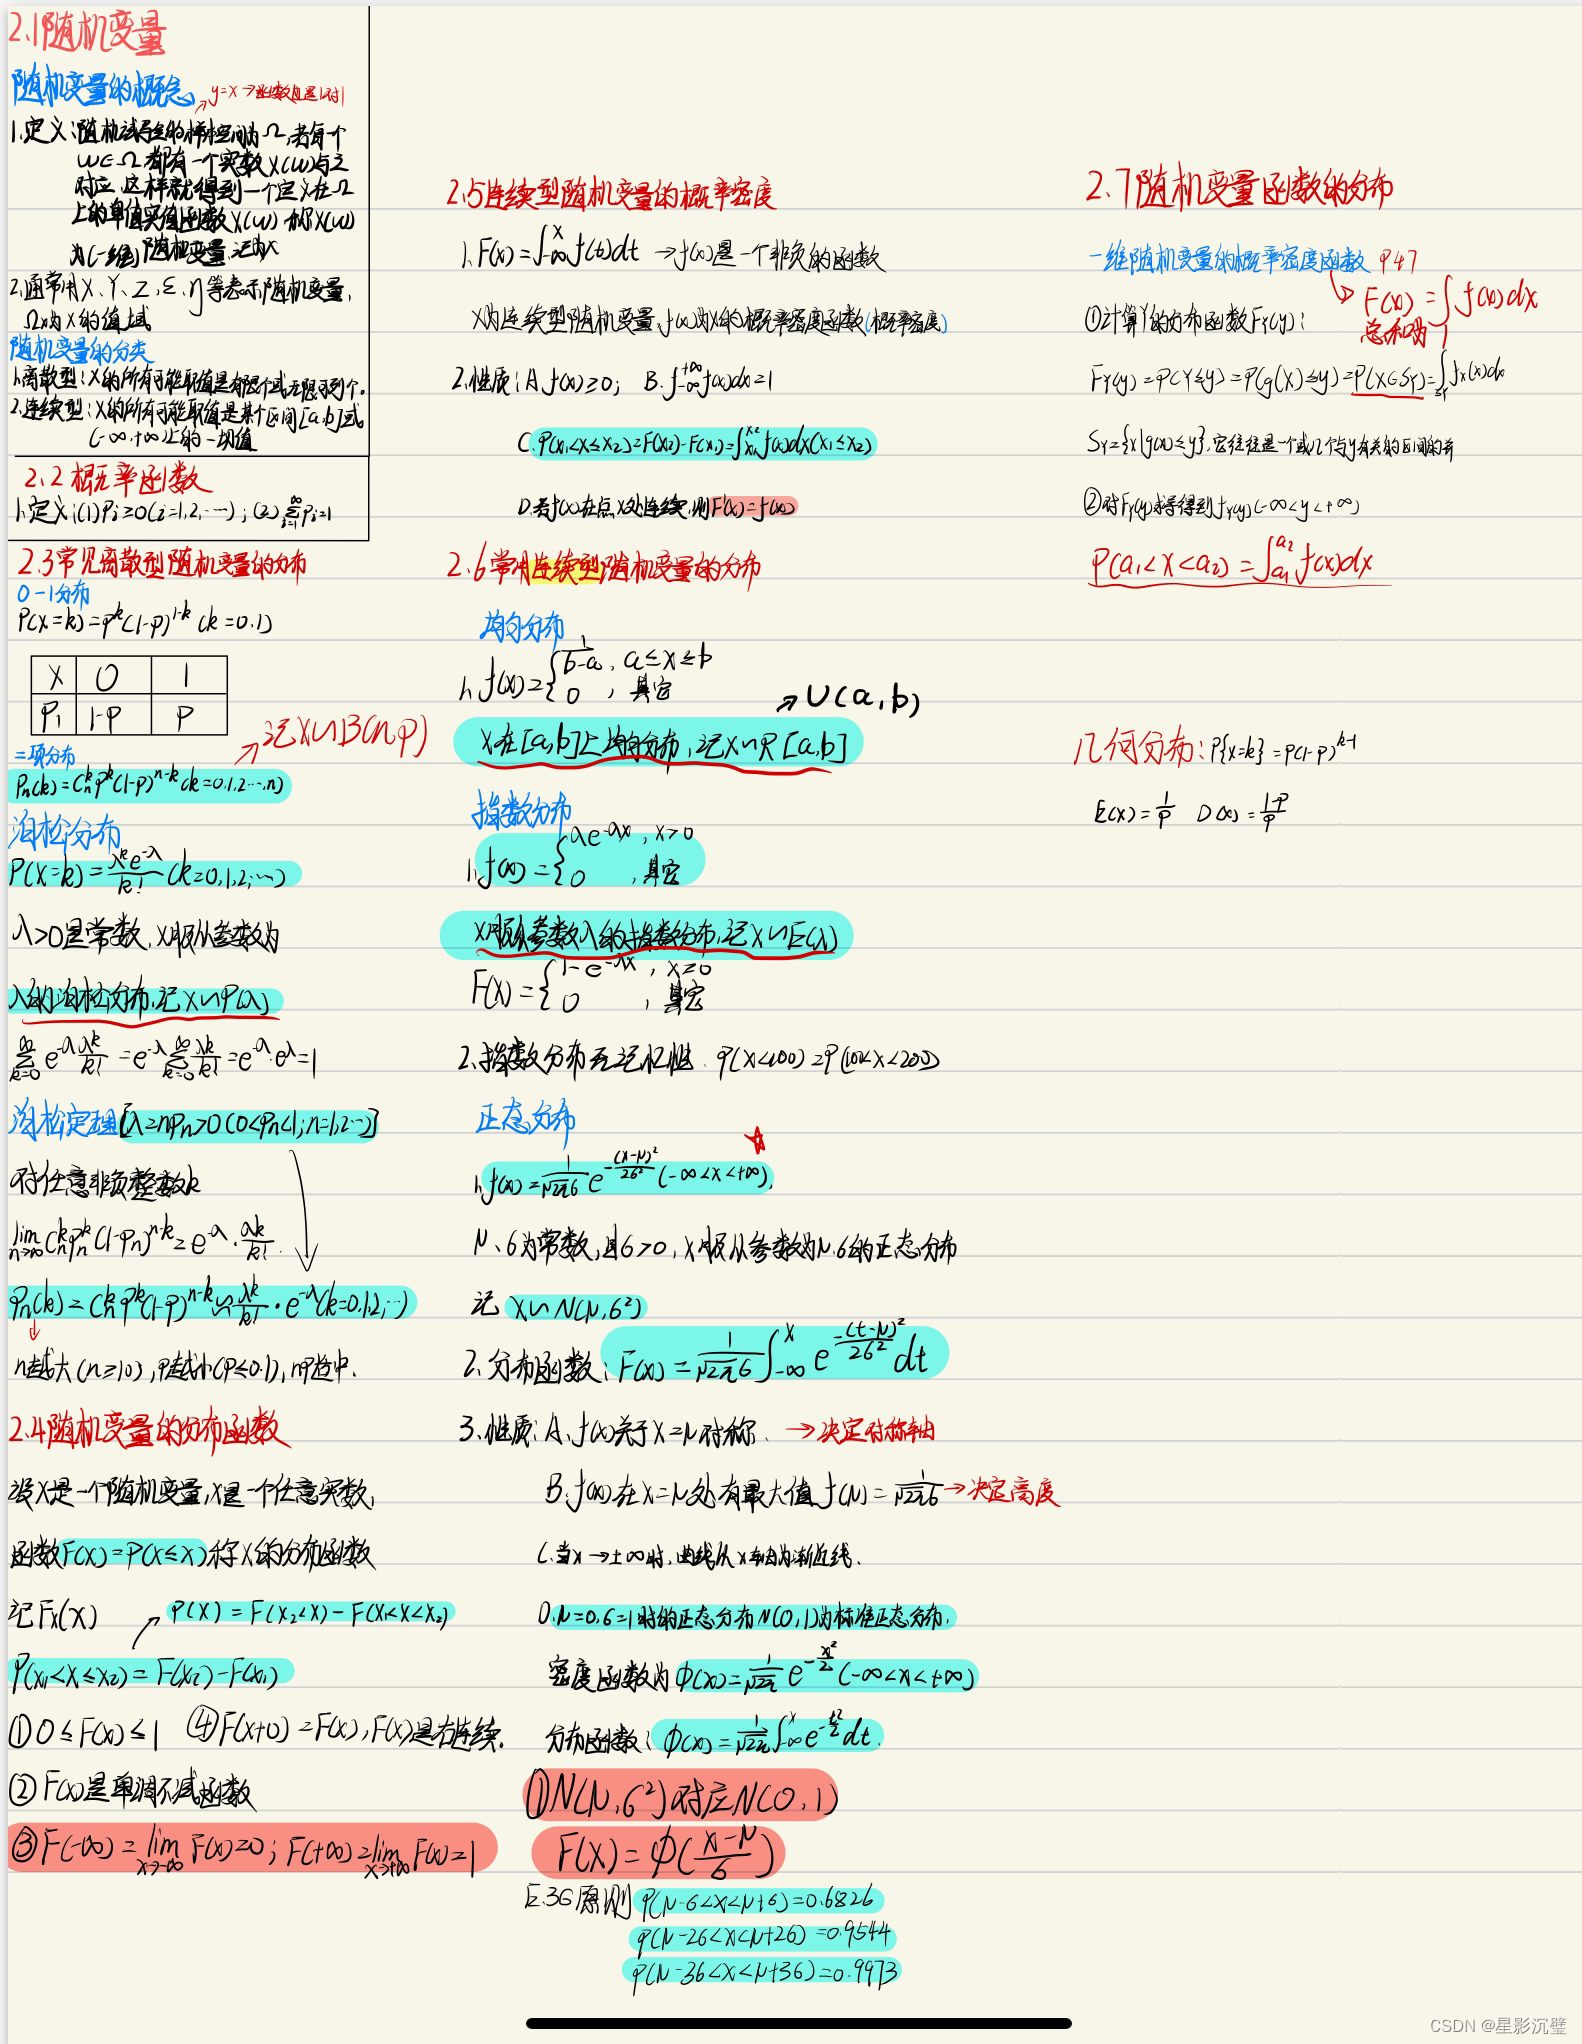 2.1随机变量
随机变量的概念
y=x→函数且是1对1
1.定义:随机试验的样本空间为Ω,若每个
ω∈Ω都有一个实数X(ω)与之
对应,这样就得到一个定义在Ω
上的单值实值函数X(ω) 称X(ω)
为(一维)随机变量 记为X
2.通常用X、Y、Z,ξ、η等表示随机变量,
Ωx为X的值域
随机变量的分类
1.离散型:X的所有可能取值是有限个或无限可列个.
2.连续型:X的所有可能取值是某个区间[a,b]或
(-∞,+∞)上的一切值
2.2 概率函数
1.定义:(1)Pi≥0(i=1,2,…);(2)∑(i=1→∞)Pi=1
2.3常见离散型随机变量的分布
0-1分布
P(X=k)=P^k(1-P)^(1-k) (k=0.1)
X 0 1
Pi 1-P P
二项分布
→记X∽B(n,p)
Pn(k)=Cn^k P^k(1-P)^(n-k) (k=0,1,2…,n)
泊松分布
P(X=k)=λ^k e^-λ/k! (k=0,1,2,…)
λ>0是常数,X服从参数为
λ的泊松分布,记X∽P(λ)
∑(k=0→∞) e^-λ λ^k/k! =e^-λ ∑(k=0→∞) λ^k/k! =e^-λ·e^λ=1
泊松定理[λ=nPn>0(0<Pn<1;n=1,2…)]
对任意非负整数k
lim(n→∞) Cn^k Pn^k(1-Pn)^(n-k)=e^-λ·λ^k/k!
Pn(k)=Cn^k P^k(1-P)^(n-k)∽λ^k/k!·e^-λ(k=0,1,2,…)
n越大(n≥10),P越小(P≤0.1),nP适中.
2.4随机变量的分布函数
设X是一个随机变量,x是一个任意实数,
函数F(X)=P(X≤x)称X的分布函数
记Fx(x)
P(X)=F(X2<X)-F(X1<X<X2)
P(x1<X≤x2)=F(x2)-F(x1)
①0≤F(x)≤1 ④F(x+0)=F(x),F(x)是右连续.
②F(x)是单调不减函数
③F(-∞)=lim(x→-∞) F(x)=0; F(+∞)=lim(x→+∞) F(x)=1
2.5连续型随机变量的概率密度
1.F(x)=∫(-∞→x) f(t)dt →f(x)是一个非负的函数
X为连续型随机变量,f(x)为X的概率密度函数(概率密度)
2.性质:A.f(x)≥0; B.∫(-∞→+∞) f(x)dx=1
C.P(x1<X≤x2)=F(x2)-F(x1)=∫(x1→x2) f(x)dx(x1≤x2)
D.若f(x)在点x处连续,则F'(x)=f(x)
2.6常用连续型随机变量的分布
均匀分布
1.f(x)={1/(b-a),a≤x≤b
0 ,其它
→U(a,b)
X在[a,b]上均匀分布,记X∽R[a,b]
指数分布
1.f(x)={λe^-λx,x>0
0 ,其它
X服从参数λ的指数分布,记X∽E(λ)
F(X)={1-e^-λx,x≥0
0 ,其它
2.指数分布无记忆性.P(X<100)=P(100<X<200)
正态分布
1.f(x)=1/(√2π σ) e^(-(x-μ)²/2σ²) (-∞<x<+∞),
μ、σ为常数,且σ>0,X服从参数为μ.σ的正态分布
记 X∽N(μ,σ²)
2.分布函数:F(x)=1/(√2π σ)∫(-∞→x) e^(-(t-μ)²/2σ²)dt
3.性质:A.f(x)关于X=μ对称. →决定对称轴
B.f(x)在x=μ处有最大值f(μ)=1/(√2π σ)→决定高度
C.当x→±∞时,曲线以x轴为渐近线.
D.μ=0,σ=1时的正态分布N(0,1)为标准正态分布.
密度函数为φ(x)=1/√2π e^(-x²/2) (-∞<x<+∞)
分布函数:φ(x)=1/√2π∫(-∞→x) e^(-t²/2)dt.
①N(μ,σ²)对应N(0,1)
F(X)=φ((x-μ)/σ)
E.3σ原则P(μ-σ<X<μ+σ)=0.6826
P(μ-2σ<X<μ+2σ)=0.9544
P(μ-3σ<X<μ+3σ)=0.9973
2.7随机变量函数的分布
一维随机变量的概率密度函数 P47
F(x)=∫f(x)dx
总和为1
①计算Y的分布函数FY(y):
FY(y)=P(Y≤y)=P(g(X)≤y)=P(X∈Sy)=∫Sy fx(x)dx
Sy={x|g(x)≤y},它往往是一个或几个与y有关的区间的并
②对FY(y)求导得到fY(y)(-∞<y<+∞)
P(a1<X<a2)=∫(a1→a2) f(x)dx
几何分布:P{x=k}=P(1-P)^(k-1)
E(X)=1/P D(X)=(1-P)/P
CSDN @星影沉璧